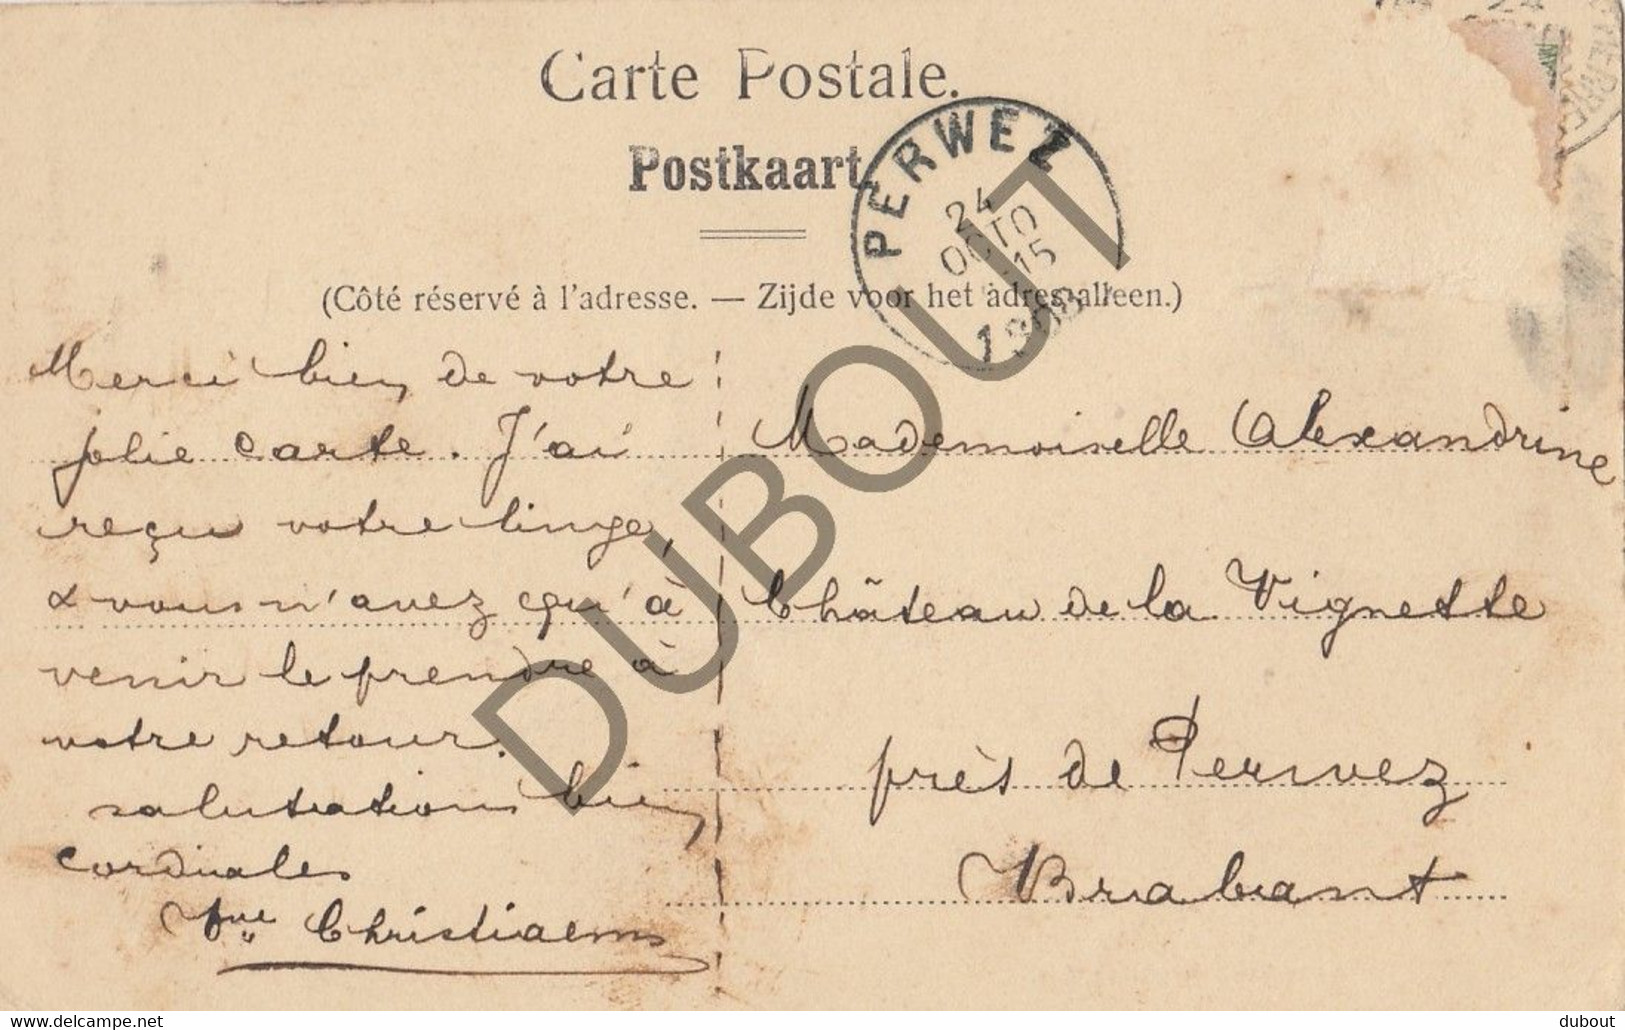 Carte Postale.
Postkaart.
PERWEZ
24
OCTO
15
(Côté réservé à l'adresse. — Zijde voor het adres alleen.)
Merci bien de votre
jolie carte. J'ai
reçu votre linge,
& vous n'avez qu'à
venir le prendre à
votre retour.
salutations bien
cordiales
Vve Christiaens
Mademoiselle Alexandrine
Château de la Vignette
près de Perwez
Brabant
DUBOUT
https://www.delcampe.net
dubout